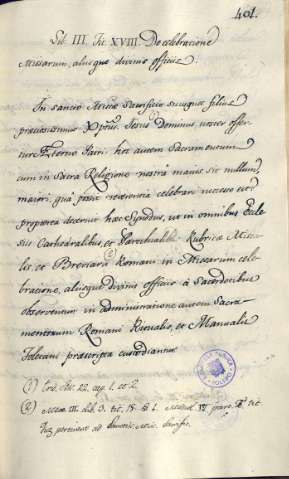 401.
Lib. III. Tit. XVIII. De celebratione
Missarum, aliisque divinis officiis.
In sancto Missæ Sacrificio
præciosissimus Xptus Jesus Dominus noster offer
tur Æterno Patri: hoc autem Sacramentum
cum in Sacra Religione nostra maius sit nullum,
maiori quâ posset reverentia celebrari necesse est:
propterea decernit hæc Synodus, ut in omnibus Eccle
siis Cathedralibus, et Parochialibus Rubricæ Missa
lis, et Breviarii Romani in Missarum cele
bratione, aliisque divinis officiis à Sacerdotibus
observentur in administratione autem Sacra
mentorum Romani Ritualis, et Manualis
Toletani præscripta custodiantur
(1) Trid. Ses. 22. cap. 1. et 2.
(2) lib. 3. tit. 15